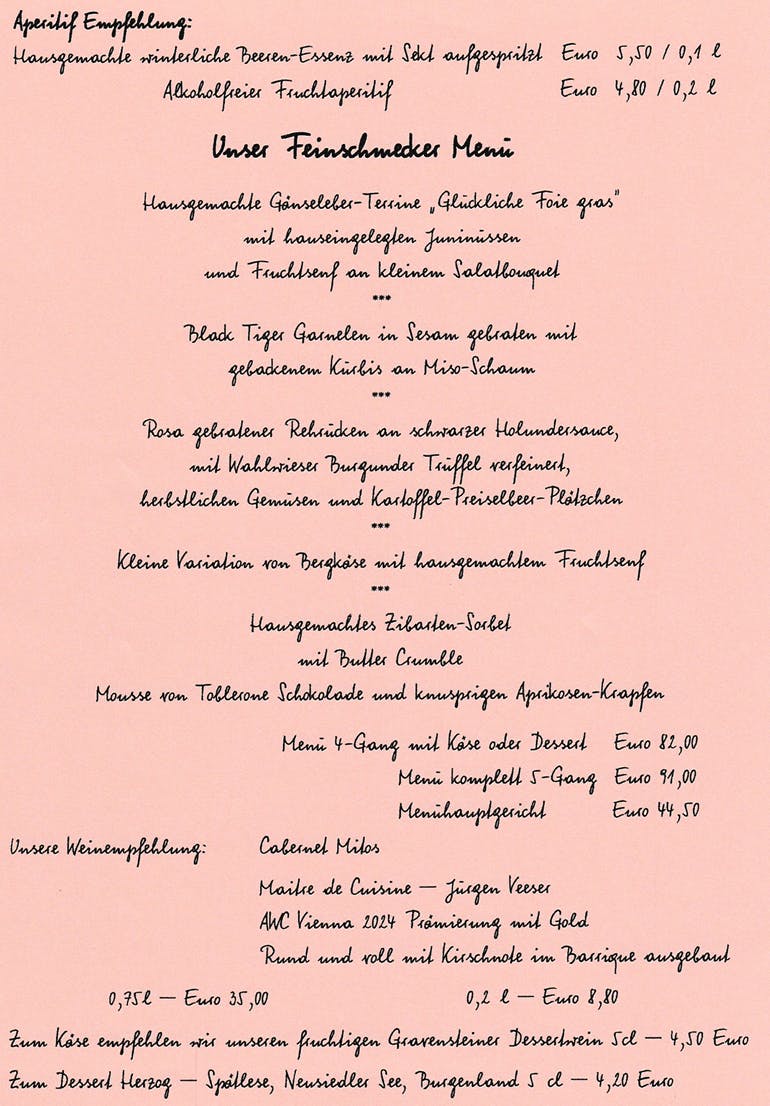 Aperitif Empfehlung:
Hausgemachte winterliche Beeren-Essenz mit Sekt aufgespritzt Euro 5,50 / 0,1 l
Alkoholfreier Fruchtaperitif Euro 4,80 / 0,2 l
Unser Feinschmecker Menü
Hausgemachte Gänseleber-Terrine „Glückliche Foie gras"
mit hauseingelegten Juninüssen
und Fruchtsenf an kleinem Salatbouquet
***
Black Tiger Garnelen in Sesam gebraten mit
gebackenem Kürbis an Miso-Schaum
***
Rosa gebratener Rehrücken an schwarzer Holundersauce,
mit Wahlwieser Burgunder Trüffel verfeinert,
herbstlichen Gemüsen und Kartoffel-Preiselbeer-Plätzchen
***
Kleine Variation von Bergkäse mit hausgemachtem Fruchtsenf
***
Hausgemachtes Zibarten-Sorbet
mit Butter Crumble
Mousse von Toblerone Schokolade und knusprigen Aprikosen-Krapfen
Menü 4-Gang mit Käse oder Dessert Euro 82,00
Menü komplett 5-Gang Euro 91,00
Menühauptgericht Euro 44,50
Unsere Weinempfehlung: Cabernet Mitos
Maitre de Cuisine – Jürgen Veeser
AWC Vienna 2024 Prämierung mit Gold
Rund und voll mit Kirschnote im Barrique ausgebaut
0,75l – Euro 35,00 0,2 l – Euro 8,80
Zum Käse empfehlen wir unseren fruchtigen Gravensteiner Dessertwein 5cl – 4,50 Euro
Zum Dessert Herzog – Spätlese, Neusiedler See, Burgenland 5 cl – 4,20 Euro